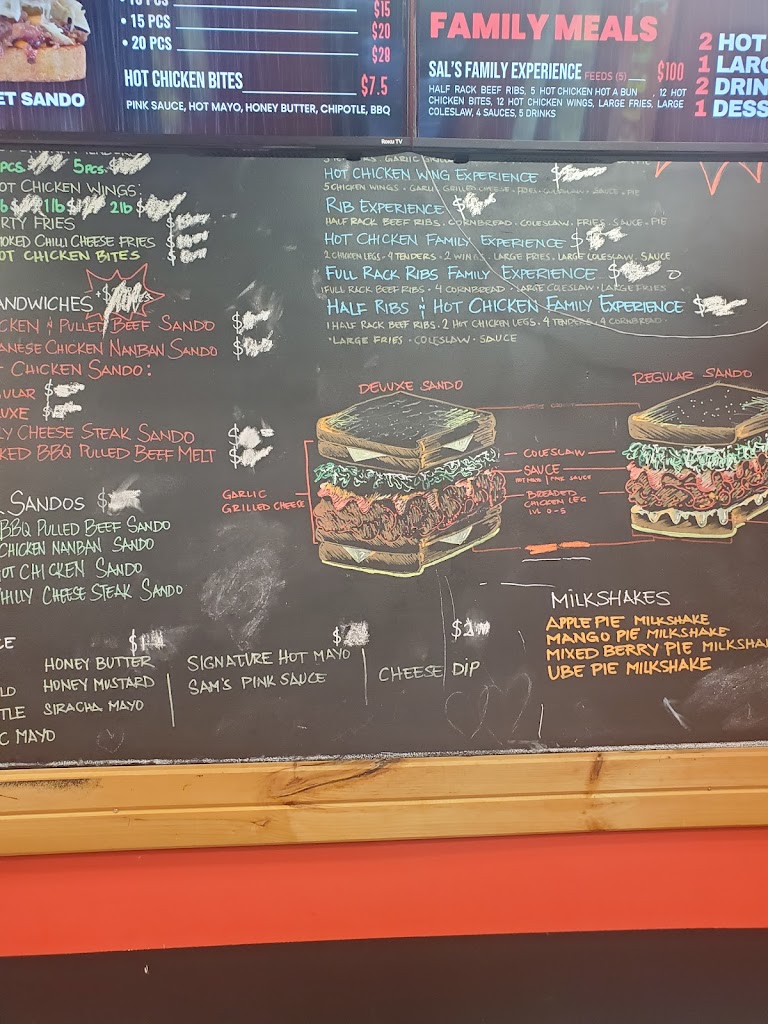 $15
• 15 PCS $20
• 20 PCS $28
HOT CHICKEN BITES $7.5
PINK SAUCE, HOT MAYO, HONEY BUTTER, CHIPOTLE, BBQ
ET SANDO
FAMILY MEALS
SAL'S FAMILY EXPERIENCE FEEDS (5) $100
HALF RACK BEEF RIBS, 5 HOT CHICKEN HOT A BUN , 12 HOT
CHICKEN BITES, 12 HOT CHICKEN WINGS, LARGE FRIES, LARGE
COLESLAW, 4 SAUCES, 5 DRINKS
2 HOT
1 LARG
2 DRIN
1 DESS
Roku TV
PCS 5PCS
OT CHICKEN WINGS:
1lb 2lb
RTY FRIES
MOKED CHILLI CHEESE FRIES
OT CHICKEN BITES
ANDWICHES
CKEN & PULLED BEEF SANDO $
ANESE CHICKEN NANBAN SANDO $
CHICKEN SANDO:
ULAR $
UXE $
LY CHEESE STEAK SANDO $
KED BBQ PULLED BEEF MELT $
SANDOS $
BBQ PULLED BEEF SANDO
CHICKEN NANBAN SANDO
OT CHICKEN SANDO
HILLY CHEESE STEAK SANDO
HOT CHICKEN WING EXPERIENCE $
5 CHICKEN WINGS · GARLIC GRILLED CHEESE · FRIES · COLESLAW · SAUCE · PIE
RIB EXPERIENCE $
HALF RACK BEEF RIBS, CORNBREAD · COLESLAW, FRIES, SAUCE · PIE
HOT CHICKEN FAMILY EXPERIENCE $
2 CHICKEN LEGS · 4 TENDERS · 2 WINGS, LARGE FRIES, LARGE COLESLAW, SAUCE
FULL RACK RIBS FAMILY EXPERIENCE $
1 FULL RACK BEEF RIBS · 4 CORNBREAD · LARGE COLESLAW · LARGE FRIES
HALF RIBS & HOT CHICKEN FAMILY EXPERIENCE $
1 HALF RACK BEEF RIBS, 2 HOT CHICKEN LEGS, 4 TENDERS, 4 CORNBREAD ·
· LARGE FRIES · COLESLAW · SAUCE
DELUXE SANDO
REGULAR SANDO
GARLIC
GRILLED CHEESE
COLESLAW
SAUCE
HOT MAYO | PINK SAUCE
BREADED
CHICKEN LEG
LVL 0-5
CE
LD
TLE
C MAYO
$1
HONEY BUTTER
HONEY MUSTARD
SIRACHA MAYO
$
SIGNATURE HOT MAYO
SAM'S PINK SAUCE
$2
CHEESE DIP
MILKSHAKES
APPLE PIE MILKSHAKE
MANGO PIE MILKSHAKE
MIXED BERRY PIE MILKSHA
UBE PIE MILKSHAKE